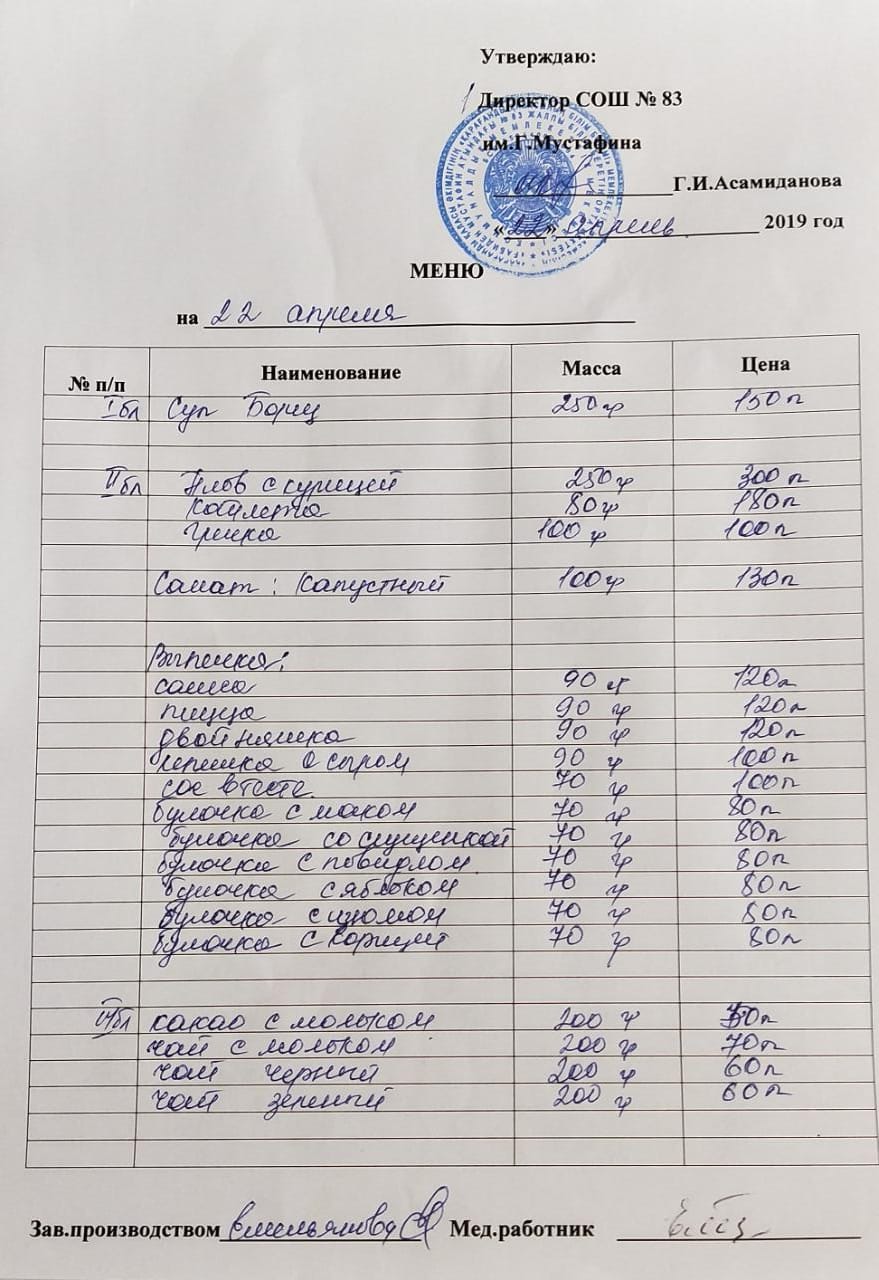 Утверждаю:
Директор СОШ № 83
им.Г.Мустафина
Г.И.Асамиданова
«22» апрель 2019 год
МЕНЮ
на 22 апреля
№ п/п Наименование Масса Цена
I бл Суп Борщ 250 гр 150 т
II бл Плов с курицей 250 гр 300 т
Котлета 80 гр 180 т
Гречка 100 гр 100 т
Салат: Капустный 100 гр 130 т
Выпечка:
самса 90 гр 120 т
пицца 90 гр 120 т
двойняшка 90 гр 120 т
лепешка с сыром 90 гр 100 т
сос в тесте. 70 гр 100 т
булочка с маком 70 гр 80 т
булочка со сгущенкой 70 гр 80 т
булочка с повидлом 70 гр 80 т
булочка с яблоком 70 гр 80 т
булочка с изюмом 70 гр 80 т
булочка с корицей 70 гр 80 т
бл какао с молоком 200 гр
чай с молоком 200 гр 70 т
чай черный 200 гр 60 т
чай зеленый 200 гр 60 т
Зав.производством Емельянова Мед.работник